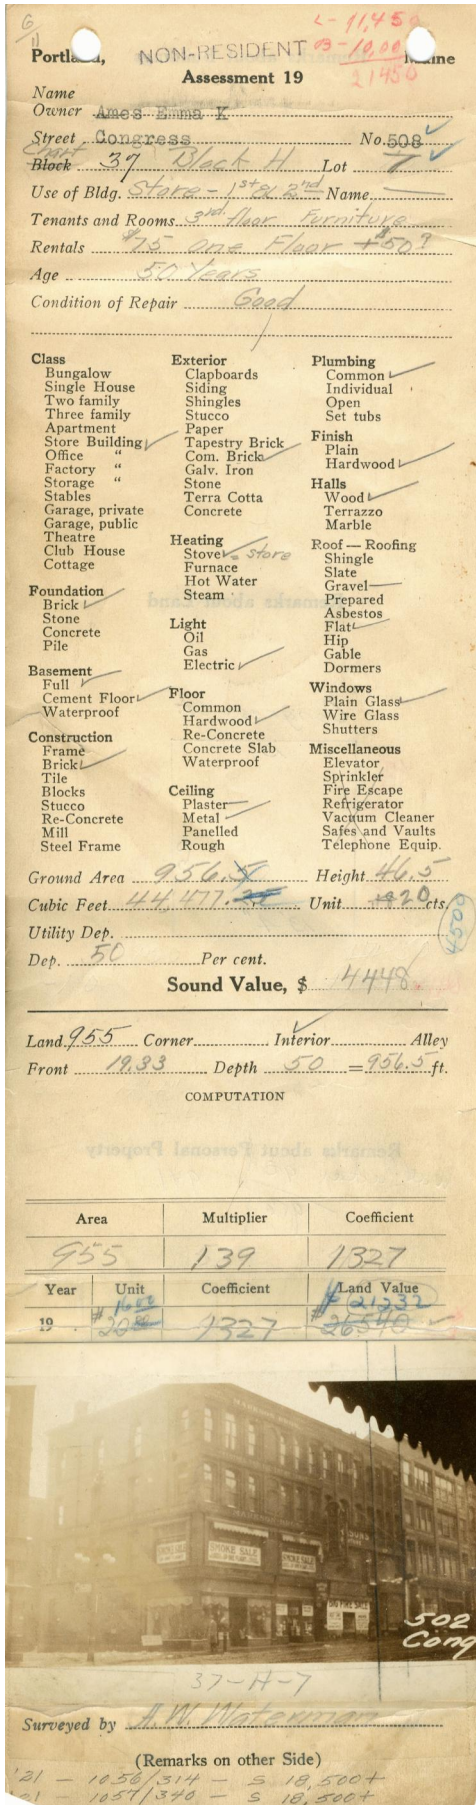 G/11
L-11,450
B-10,00
21450
Portland, NON-RESIDENT Maine
Assessment 19
Name
Owner Ames Emma K
Street Congress No. 508
Chart
Block 37 Block H Lot 7
Use of Bldg. Store - 1st & 2nd Name
Tenants and Rooms 3rd floor Furniture
Rentals $75 One Floor + $50?
Age 50 Years
Condition of Repair Good
Class
Bungalow
Single House
Two family
Three family
Apartment
Store Building
Office "
Factory "
Storage "
Stables
Garage, private
Garage, public
Theatre
Club House
Cottage
Foundation
Brick
Stone
Concrete
Pile
Basement
Full
Cement Floor
Waterproof
Construction
Frame
Brick
Tile
Blocks
Stucco
Re-Concrete
Mill
Steel Frame
Exterior
Clapboards
Siding
Shingles
Stucco
Paper
Tapestry Brick
Com. Brick
Galv. Iron
Stone
Terra Cotta
Concrete
Heating
Stove - store
Furnace
Hot Water
Steam
Light
Oil
Gas
Electric
Floor
Common
Hardwood
Re-Concrete
Concrete Slab
Waterproof
Ceiling
Plaster
Metal
Panelled
Rough
Plumbing
Common
Individual
Open
Set tubs
Finish
Plain
Hardwood
Halls
Wood
Terrazzo
Marble
Roof — Roofing
Shingle
Slate
Gravel
Prepared
Asbestos
Flat
Hip
Gable
Dormers
Windows
Plain Glass
Wire Glass
Shutters
Miscellaneous
Elevator
Sprinkler
Fire Escape
Refrigerator
Vacuum Cleaner
Safes and Vaults
Telephone Equip.
Ground Area 956.5 Height 46.5
Cubic Feet 44,477. Unit 20 cts.
4500
Utility Dep.
Dep. 50 Per cent.
Sound Value, $ 4448
Land 955 Corner Interior Alley
Front 19.33 Depth 50 = 956.5 ft.
COMPUTATION
Remarks about Personal Property
Area Multiplier Coefficient
955 139 1327
Year Unit Coefficient Land Value
16.00 21232
19 $20.00 1327 $26540
SMOKE SALE
SMOKE SALE
SMOKE SALE
BIG FIRE SALE
502
Cong
37-H-7
Surveyed by A. W. Waterman
(Remarks on other Side)
'21 - 1056/314 - S 18,500+
21 - 1057/340 - S 18,500+